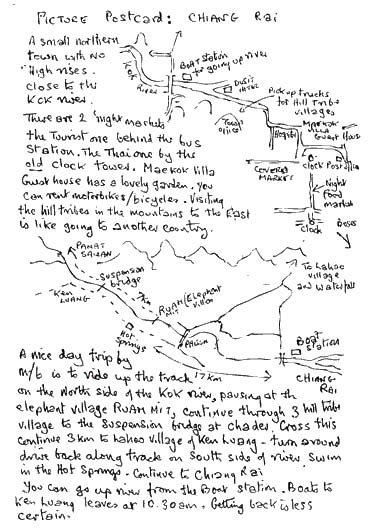 PICTURE POSTCARD: CHIANG RAI
A small northern
town with NO
High rises.
close to the
KOK rises.
There are 2 night markets
the Tourist one behind the bus
Station. The Thai one by the
old clock tower. Maekok Villa
Guest house has a lovely garden. You
can rent motorbikes/bicycles. Visiting
the hill tribes in the mountains to the East
is like going to another country.
KOK
River
BOAT Station
for going up river
DUSIT
Pick up trucks
for Hill Tribe
villages
Tourist
office
Hospital
MAEKOK
VILLA
GUEST HOUSE
COVERED
MARKET
clock
Post
Night
Food
market
clock
Buses
PANAT
Suspension
bridge
KEN LUANG
7km
RUAM MIT
Elephant
village
Hot
Springs
To Lahoo
village
and waterfall
Boat
Station
17km
CHIANG
RAI
A nice day trip by
m/b is to ride up the track
on the North side of the KOK river, pausing at th
elephant village RUAM MIT, continue through 3 hill tribe
village to the Suspension bridge at chadee. Cross this
continue 3km to Lahoo village of Ken Luang - turn around
drive back along track on South side of river swim
in the Hot Springs - Continue to Chiang Rai
You can go up river from the Boat Station. Boats to
Ken Luang leaves at 10.30am. Getting back is less
certain.